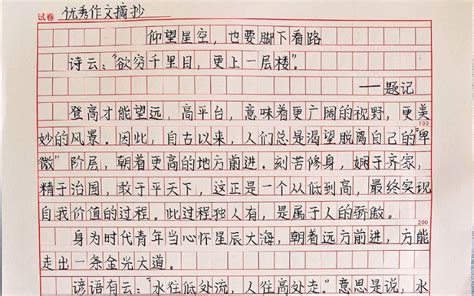 试卷 优秀作文摘抄
仰望星空，也要脚下看路
诗云：“欲穷千里目，更上一层楼”。
——题记
登高才能望远，高平台，意味着更广阔的视野，更美
100
妙的风景。因此，自古以来，人们总是渴望脱离自己的“卑
微”阶层，朝着更高的地方前进。刻苦修身，娴于齐家，
精于治国，敢于平天下，这正是一个从低到高，最终实现
自我价值的过程。此过程独人有，是属于人的骄傲。
200
身为时代青年当心怀星辰大海，朝着远方前进，方能
走出一条金光大道。
谚语有云：“水往低处流，人往高处走。”意思是说，水